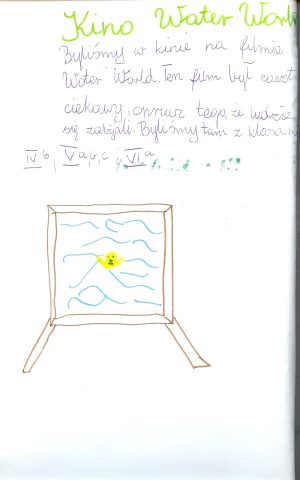 Kino Water World
Byliśmy w kinie na filmie
Water World. Ten film był nawet
ciekawy, oprucz tego, że ludzie
się zabijali. Byliśmy tam z klasami
IV b, V a, b, c i VI a